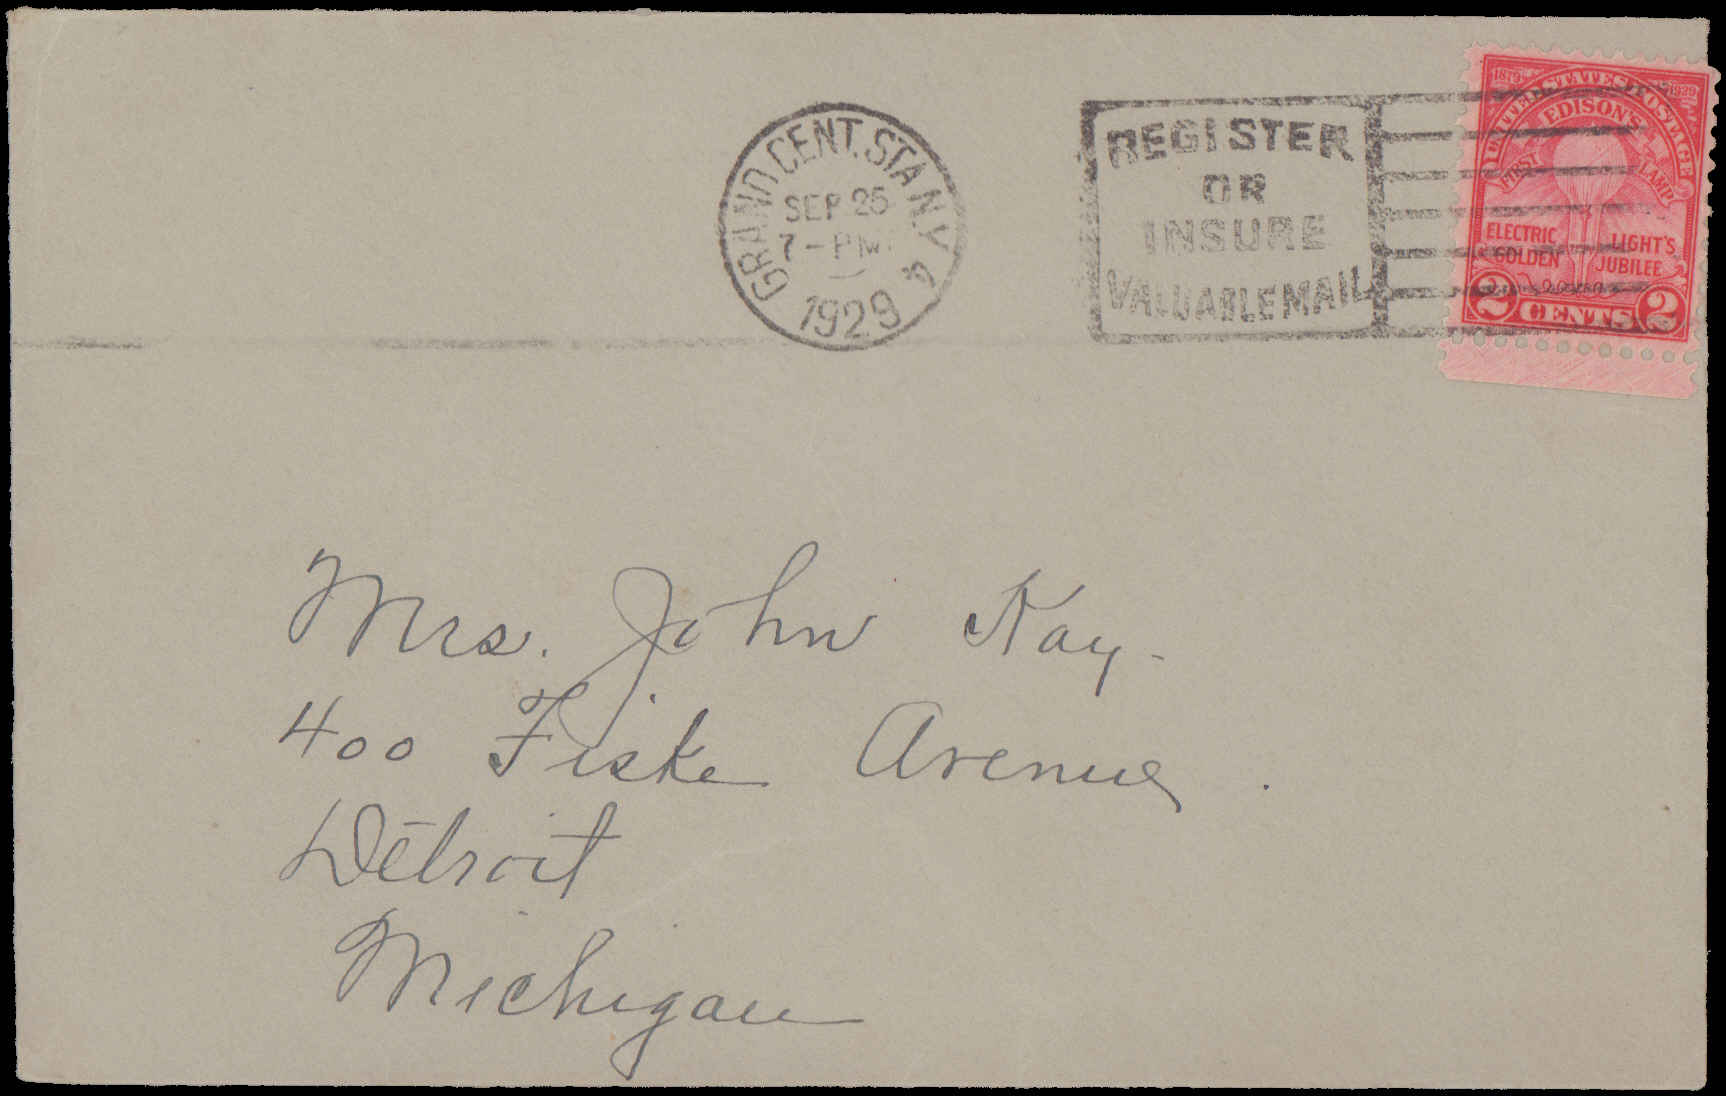 GRAND CENT. STA. N.Y.
SEP 25
7-PM
1929
REGISTER
OR
INSURE
VALUABLE MAIL
1879 1929
UNITED STATES POSTAGE
EDISON'S
FIRST LAMP
ELECTRIC LIGHT'S
GOLDEN JUBILEE
2 CENTS 2
Mrs. John Kay-
400 Fiske Avenue.
Detroit
Michigan